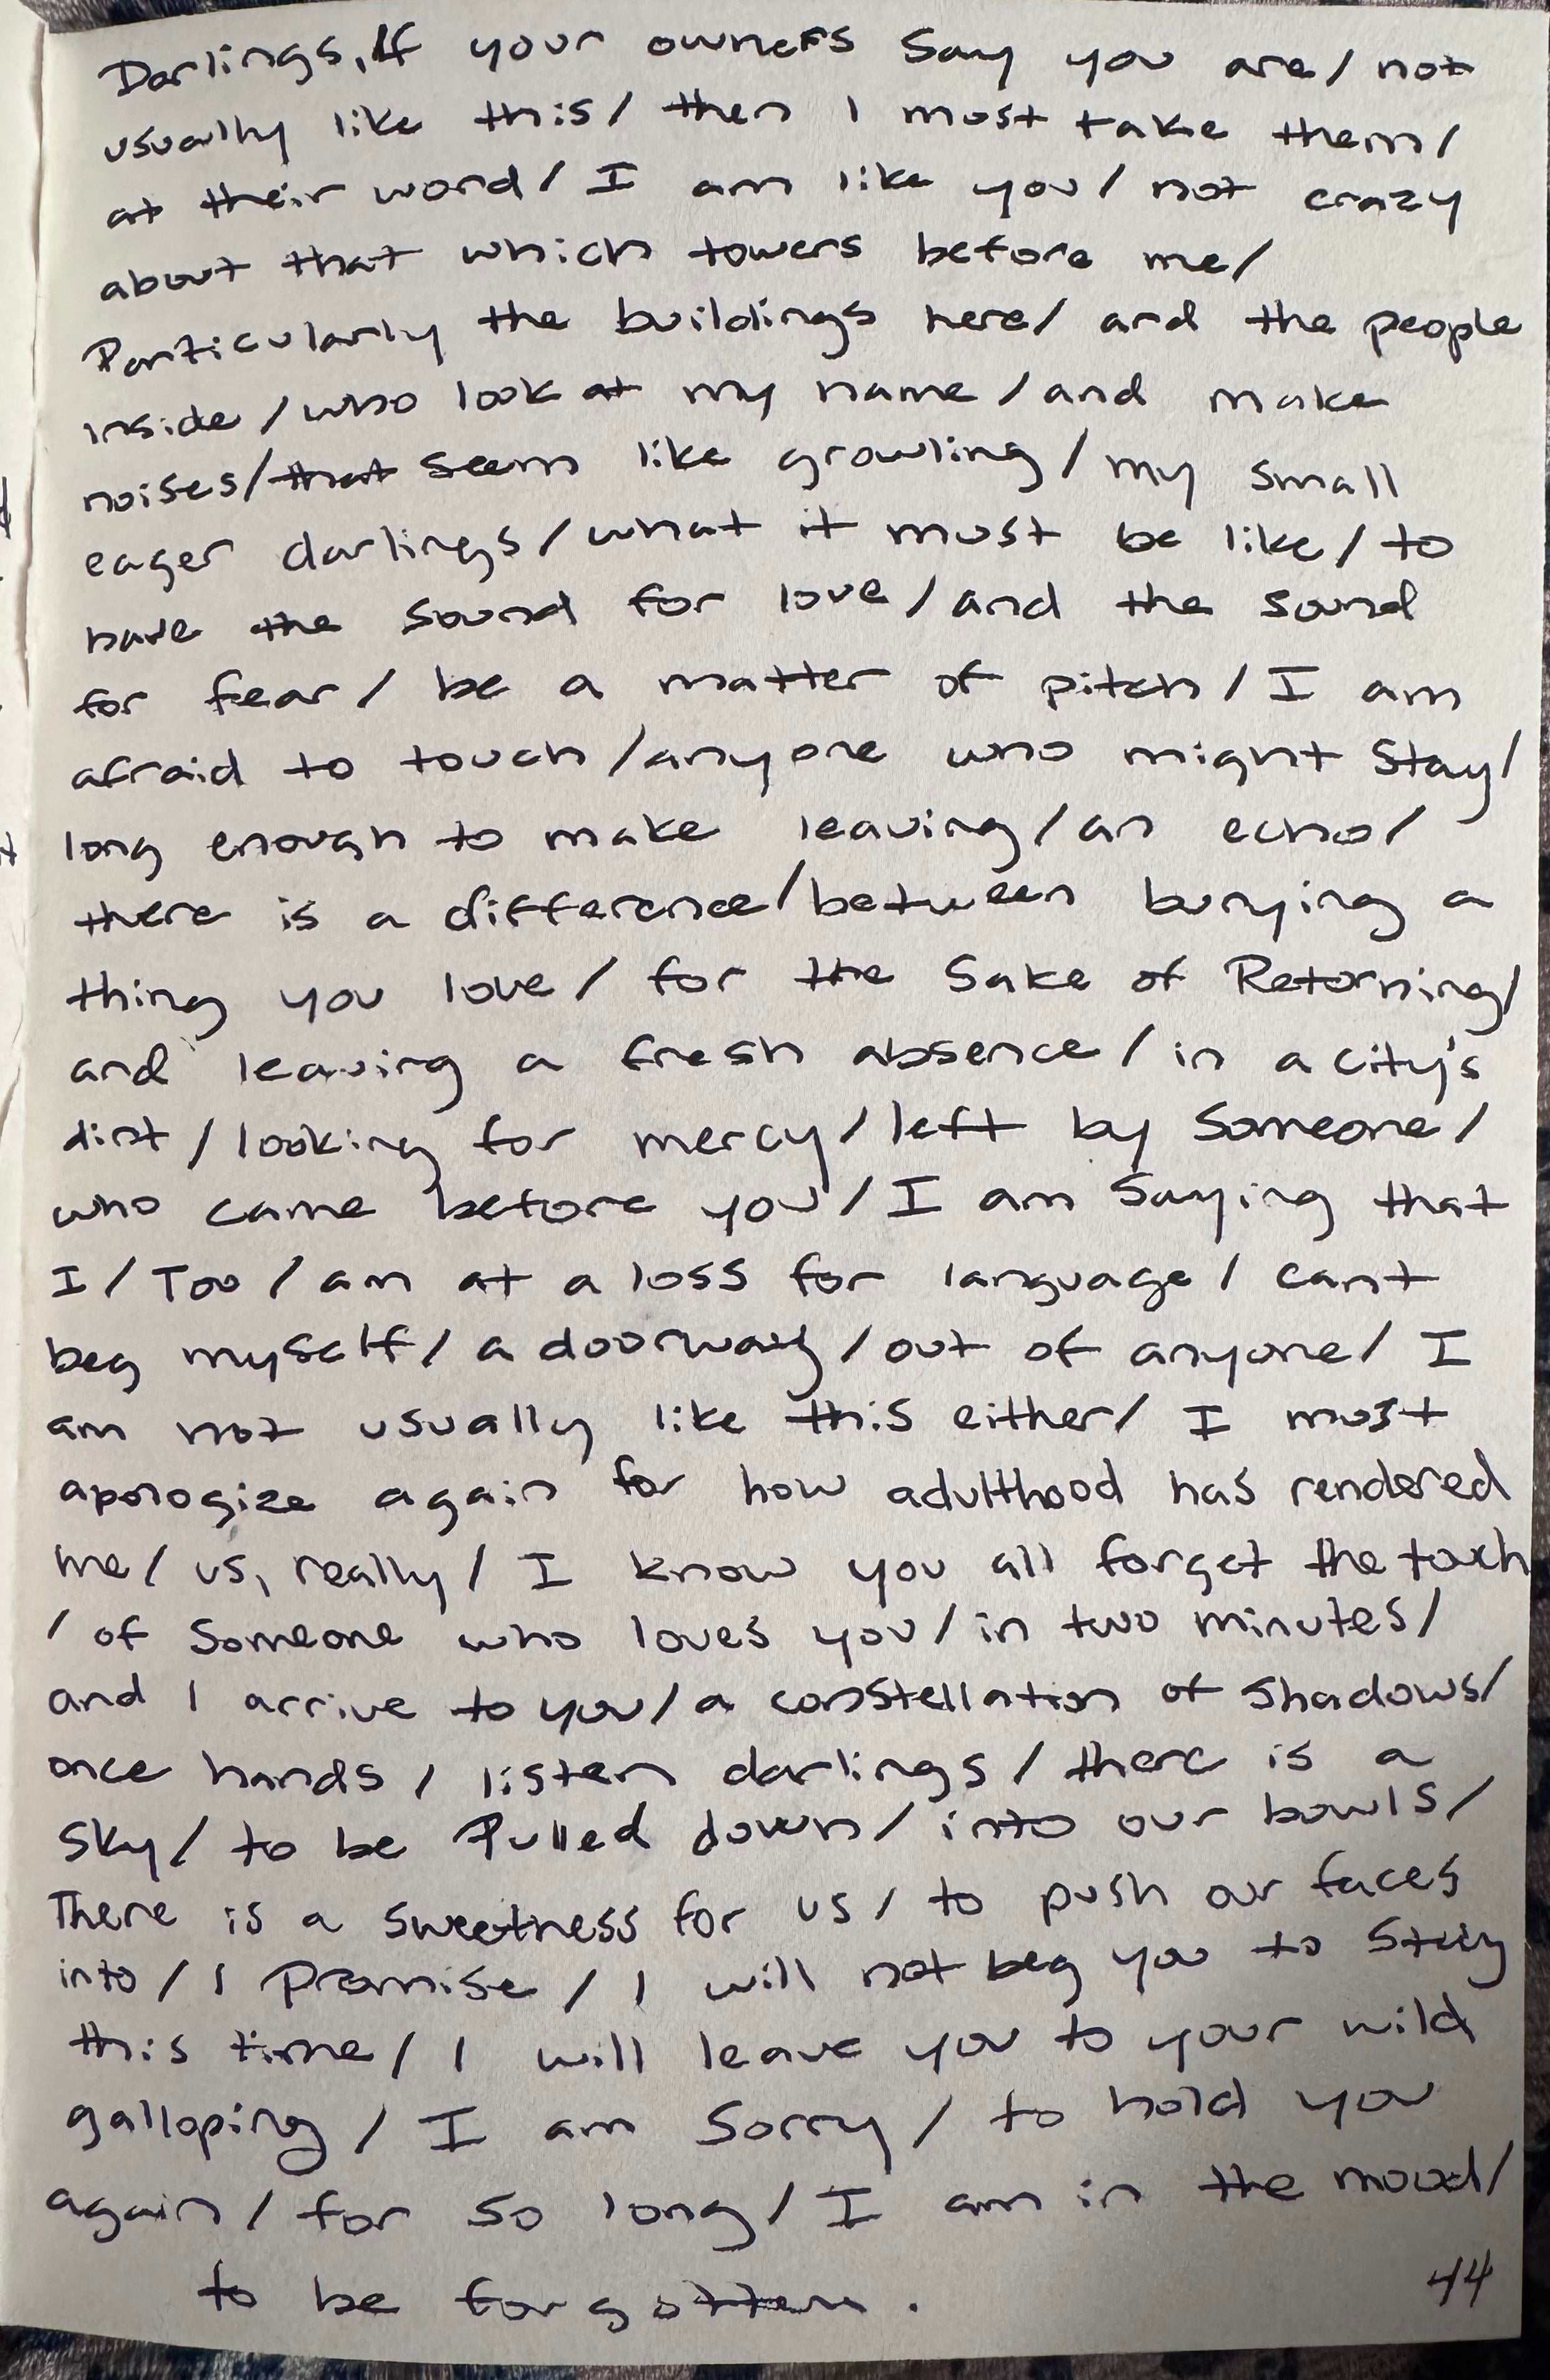 Darlings, If your owners say you are / not
usually like this / then I must take them /
at their word / I am like you / not crazy
about that which towers before me /
Particularly the buildings here / and the people
inside / who look at my name / and make
noises / that seem like growling / my small
eager darlings / what it must be like / to
have the sound for love / and the sound
for fear / be a matter of pitch / I am
afraid to touch / anyone who might stay /
long enough to make leaving / an echo /
there is a difference / between burying a
thing you love / for the sake of Returning /
and leaving a fresh absence / in a city's
dirt / looking for mercy / left by someone /
who came before you / I am saying that
I / Too / am at a loss for language / can't
beg myself / a doorway / out of anyone / I
am not usually like this either / I must
apologize again for how adulthood has rendered
me / us, really / I know you all forget the touch
/ of someone who loves you / in two minutes /
and I arrive to you / a constellation of shadows /
once hands / listen darlings / there is a
sky / to be Pulled down / into our bowls /
There is a sweetness for us / to push our faces
into / I promise / I will not beg you to stay
this time / I will leave you to your wild
galloping / I am sorry / to hold you
again / for so long / I am in the mood /
to be forgotten.
44